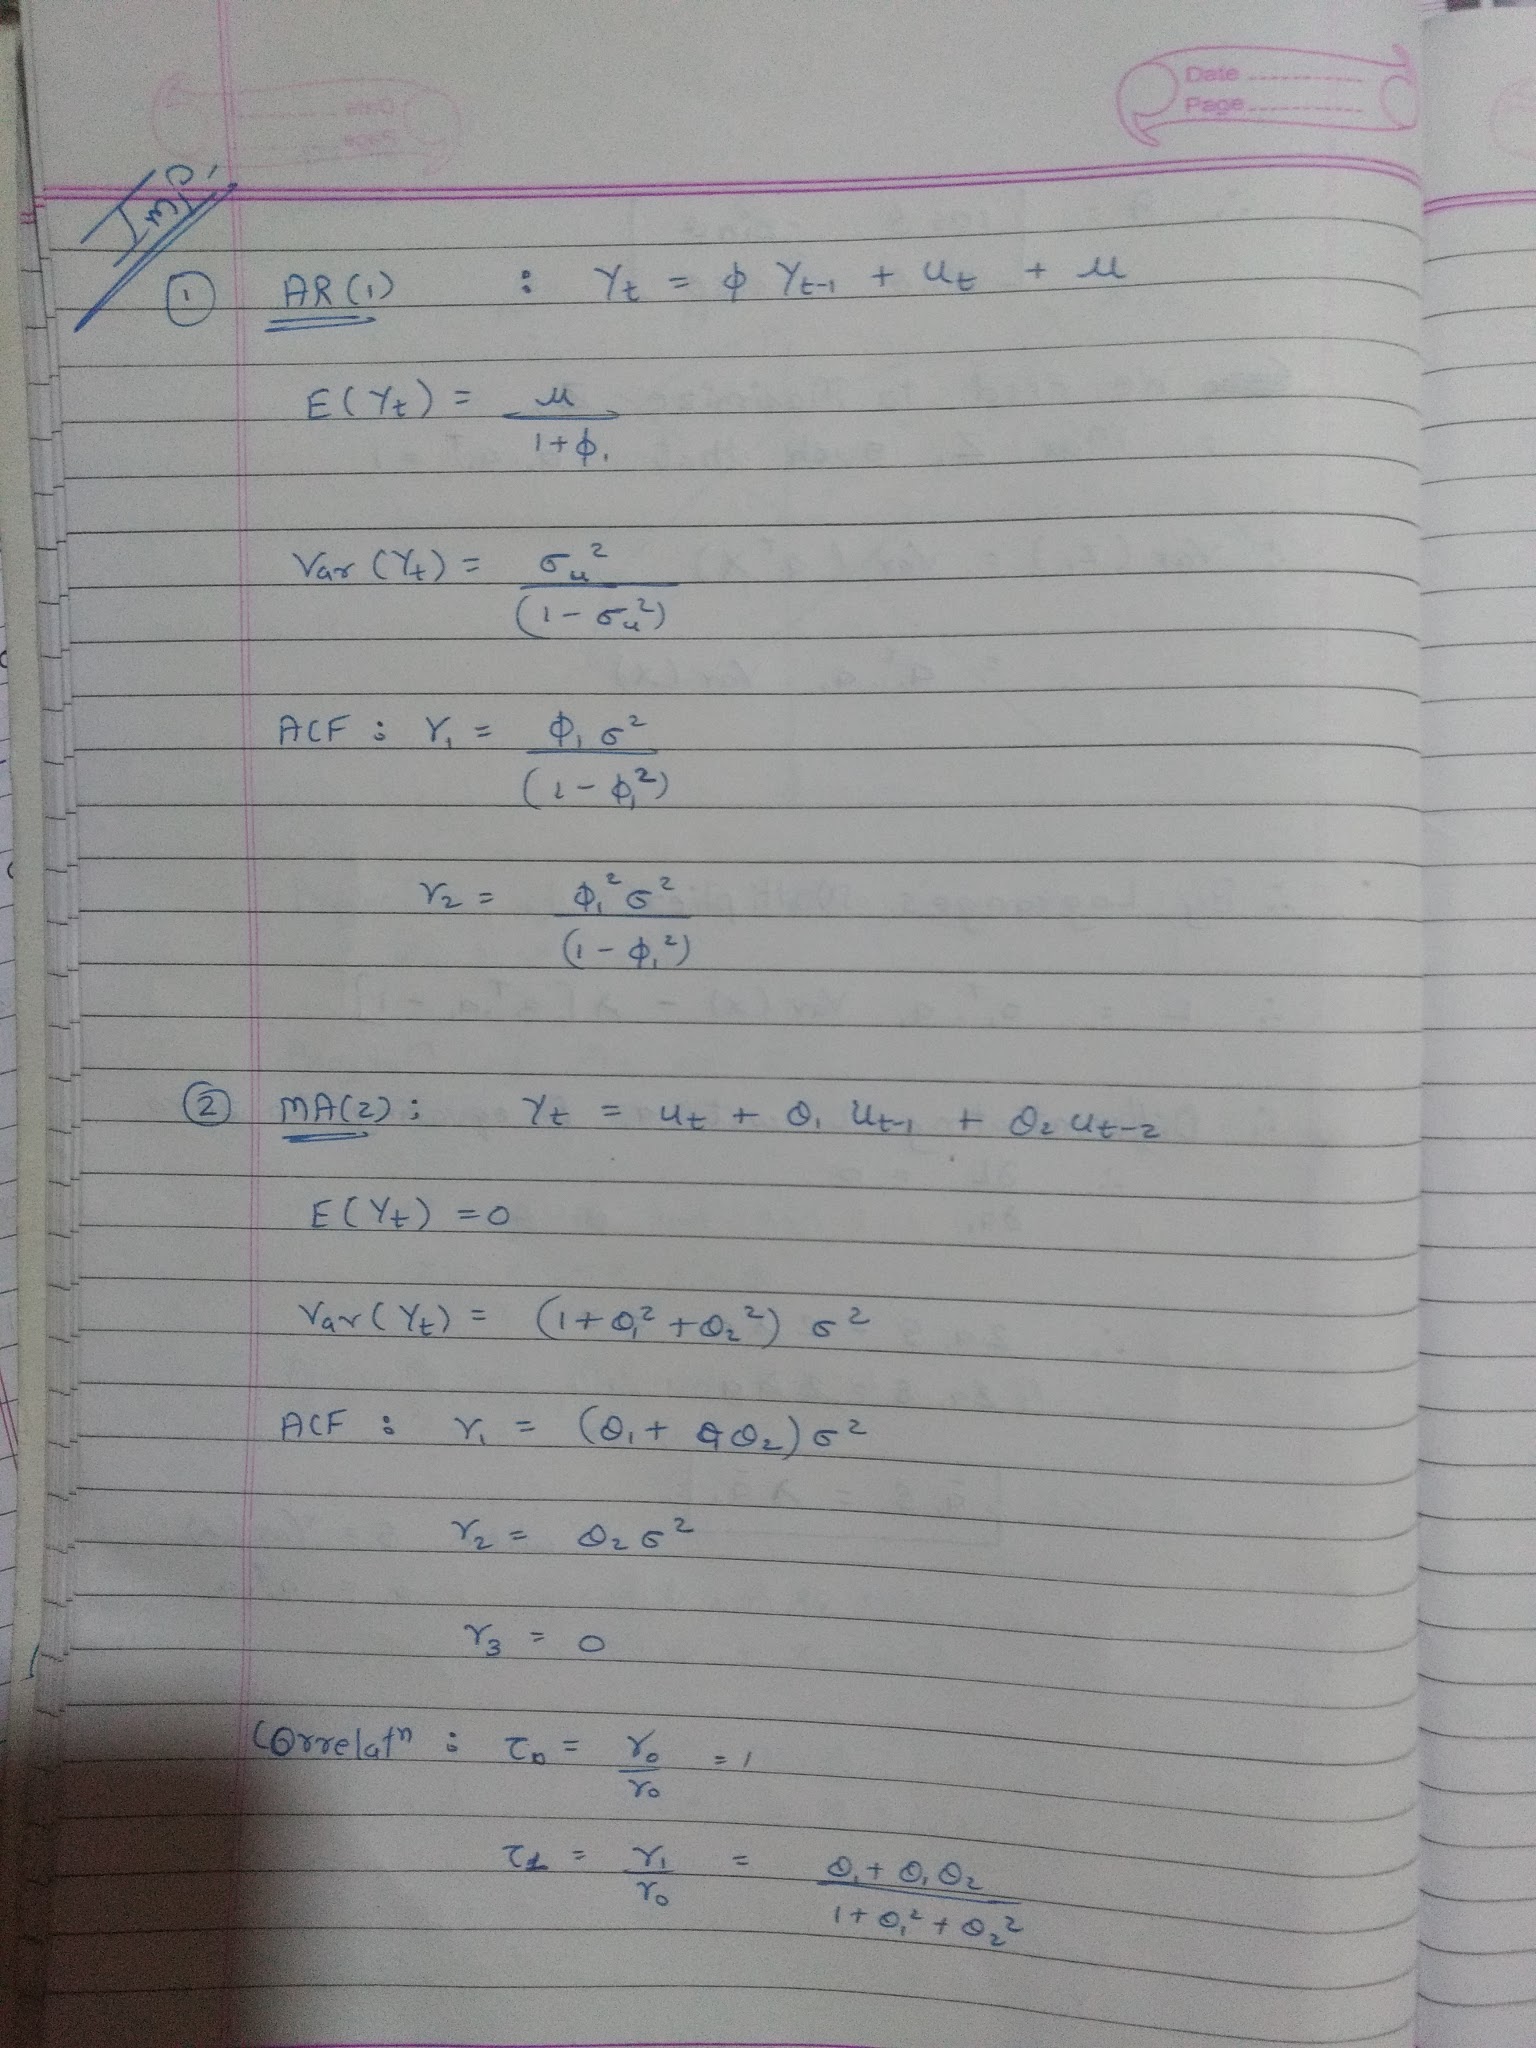 Date
Page
Imp.
① AR(1) : Yt = φ Yt-1 + ut + μ
E(Yt) = μ / 1+φ₁
Var(Yt) = σu² / (1-σu²)
ACF : γ₁ = φ₁σ² / (1-φ₁²)
γ₂ = φ₁²σ² / (1-φ₁²)
② MA(2) : Yt = ut + θ₁ ut-1 + θ₂ ut-2
E(Yt) = 0
Var(Yt) = (1+θ₁²+θ₂²) σ²
ACF : γ₁ = (θ₁+θ₁θ₂)σ²
γ₂ = θ₂σ²
γ₃ = 0
Correlatⁿ : τ₀ = γ₀/γ₀ = 1
τ₁ = γ₁/γ₀ = θ₁+θ₁θ₂ / 1+θ₁²+θ₂²